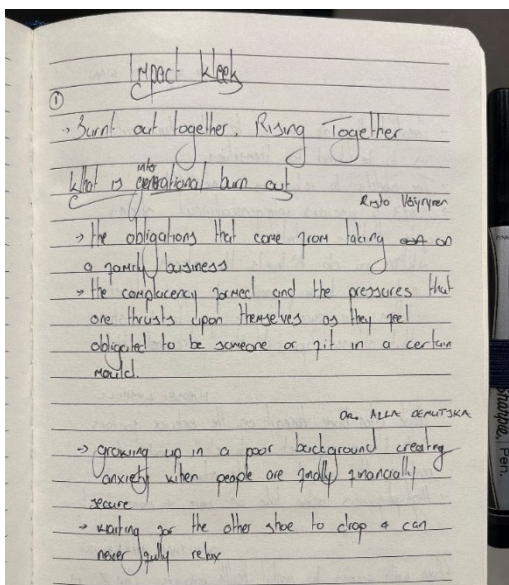 Impact Week
①
→ Burnt out together, Rising Together
inter
What is generational burn out
Risto Väyrynen
→ the obligations that come from taking on
a family business
→ the complacency formed and the pressures that
one thrusts upon themselves as they feel
obligated to be someone or fit in a certain
mould.
Dr. ALLA DEMUTSKA
→ growing up in a poor background creating
anxiety when people are finally financially
secure
→ waiting for the other shoe to drop & can
never fully relax
Sharpie. Pen.